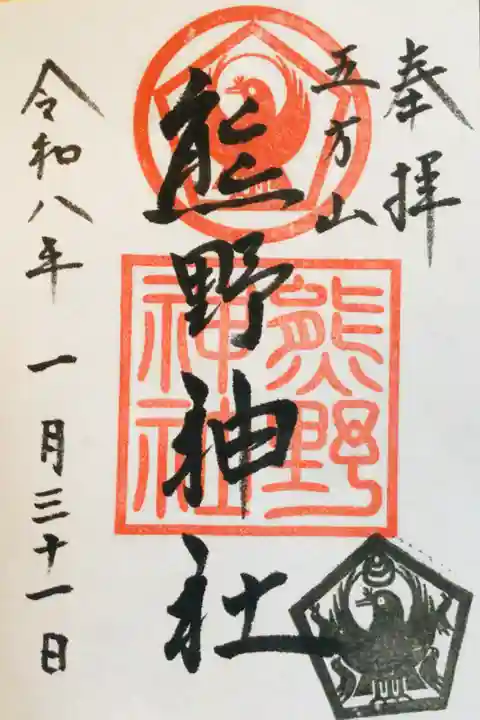 奉拝
五方山
熊野神社
熊野
神社
令和八年一月三十一日